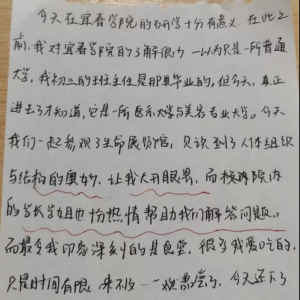 今天在宜春学院的研学十分有意义，在此之
前，我对宜春学院的了解很少，一以为只是一所普通
大学，我初三的班主任是那里毕业的，但今天，真正
进去了才知道，它是一所医系大学与美容专业大学。今天
我们一起参观了生命展览馆，见识到了人体组织
与结构的奥妙，让我大开眼界，而
的学长学姐也十份热情帮助我们解答问题。
而最令我印象深刻的是食堂，很多我爱吃的，
只是时间有限，来不及一一观尝了，今天还下了